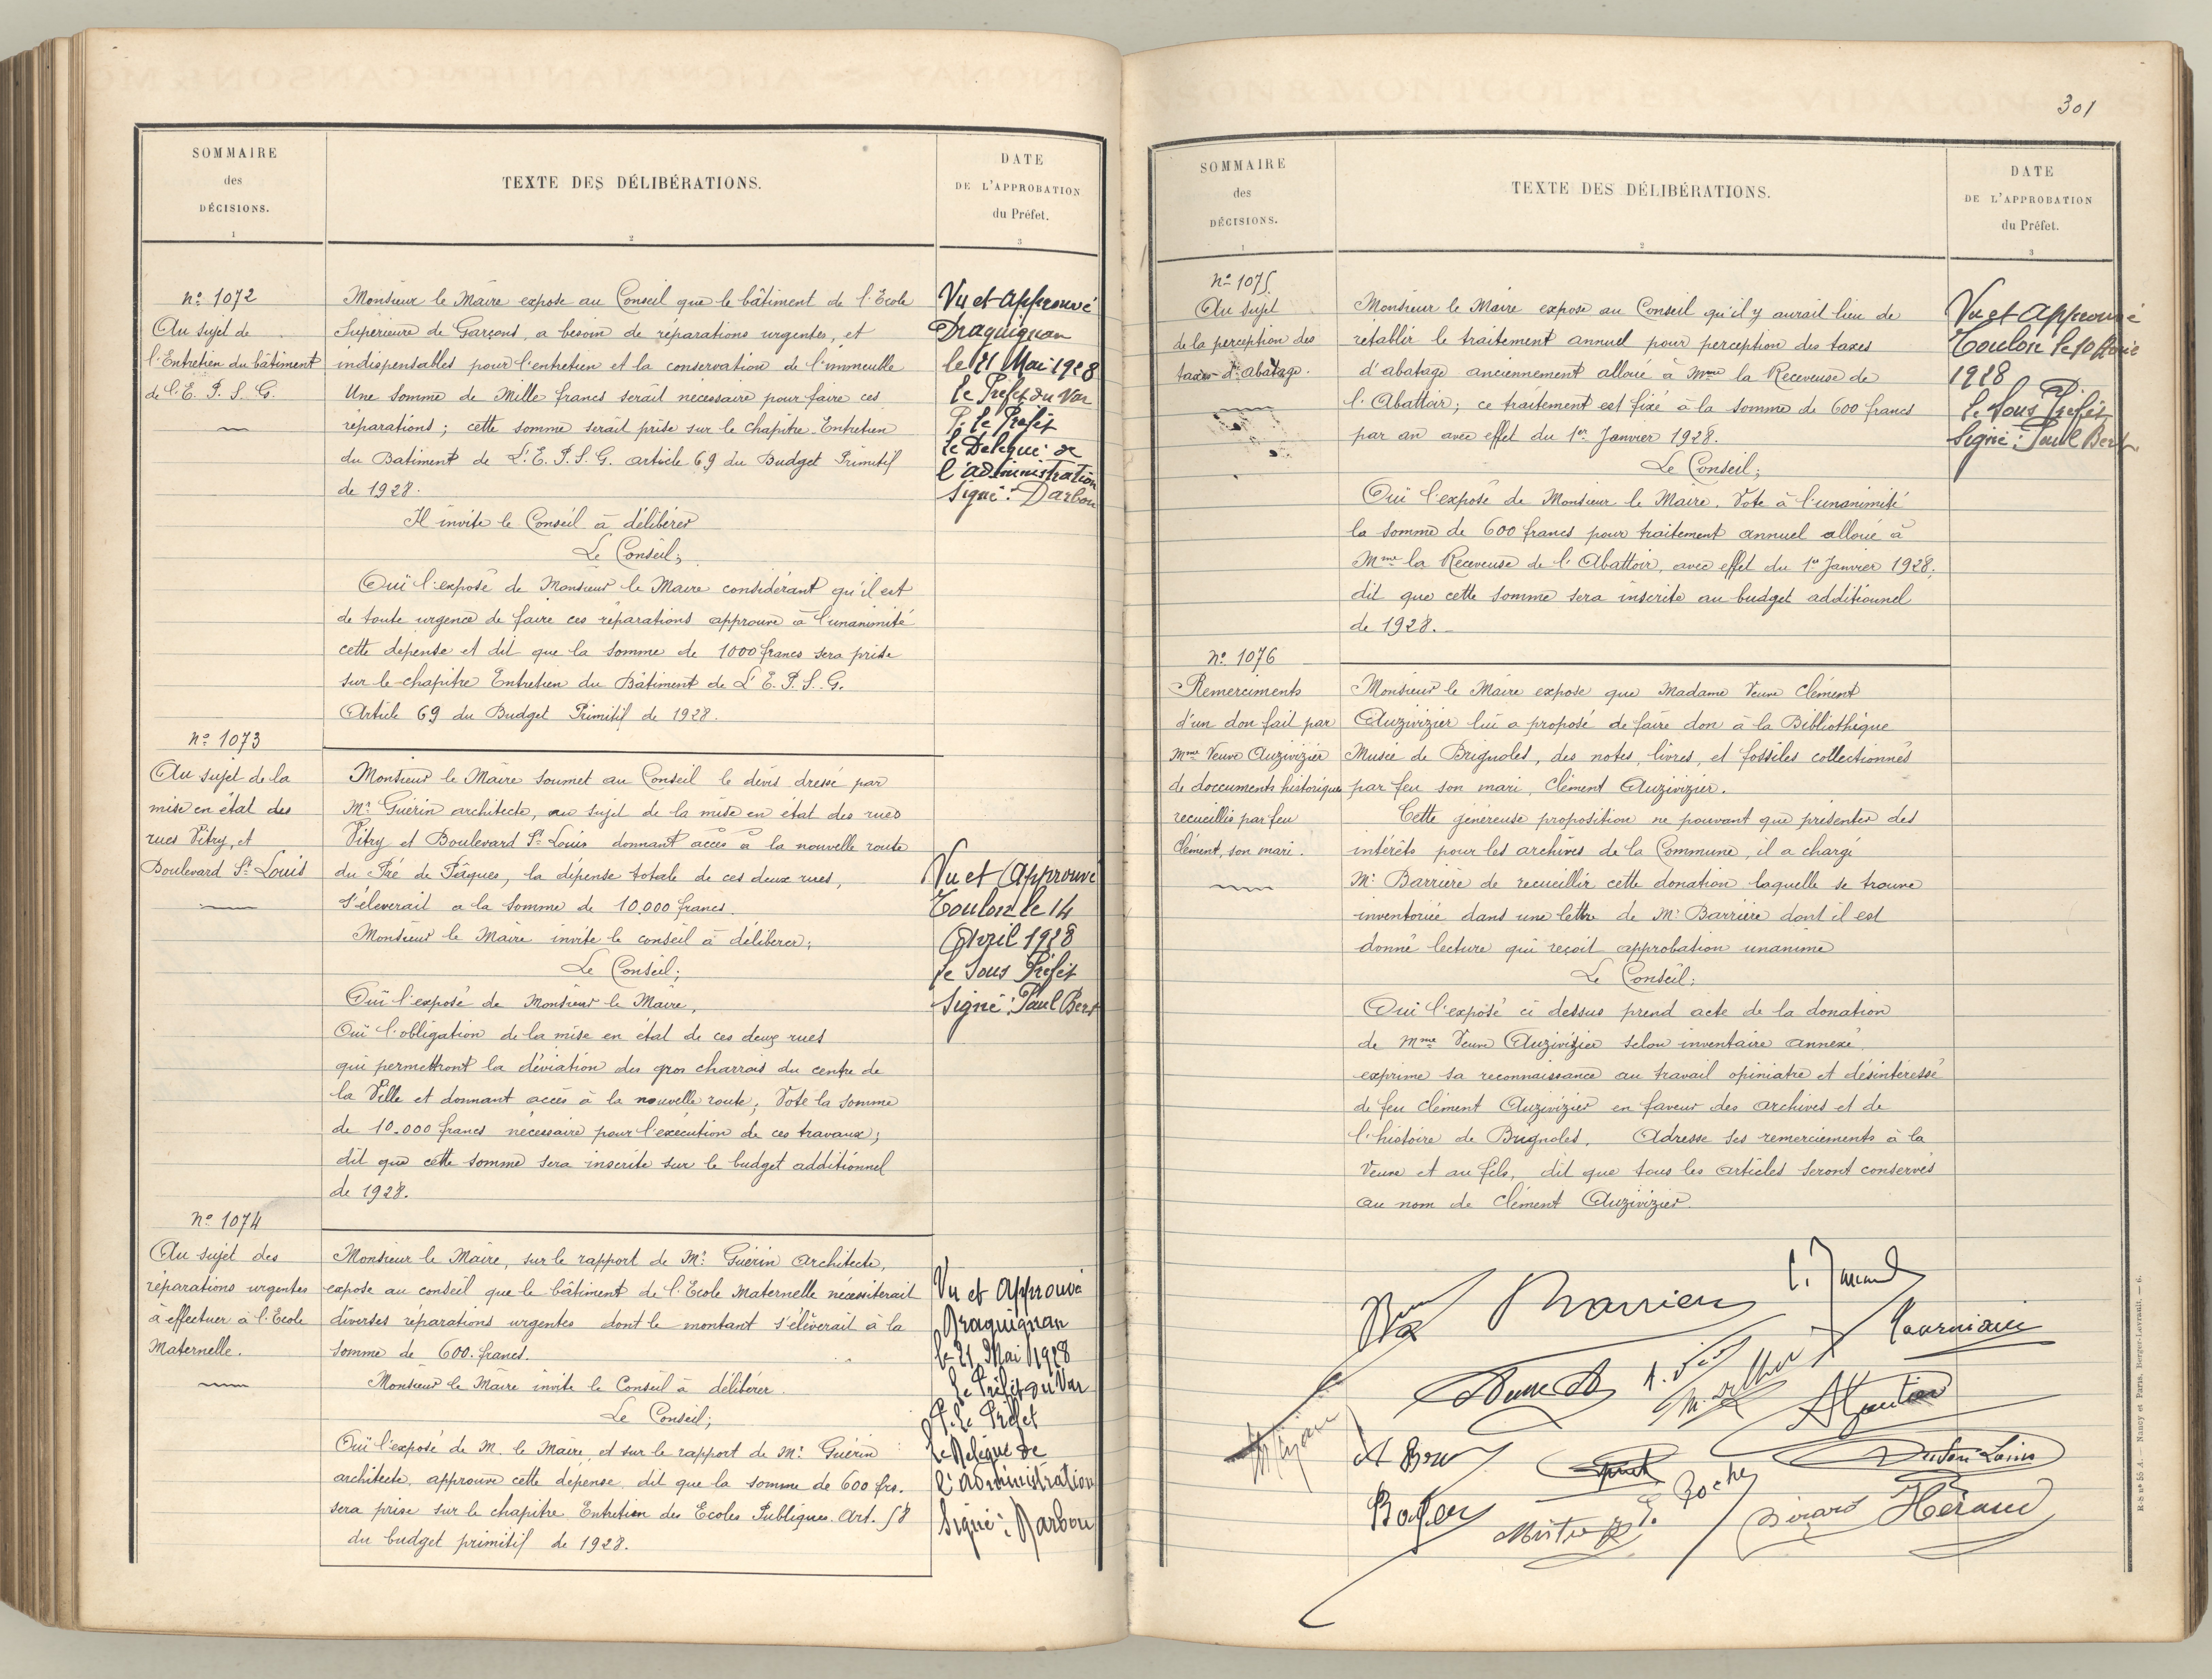 SOMMAIRE
des
DÉCISIONS.
1
TEXTE DES DÉLIBÉRATIONS.
2
DATE
DE L'APPROBATION
du Préfet.
3
No 1072
Au sujet de
l'Entretien du bâtiment
de l'E. P. S. G.
Monsieur le Maire expose au Conseil que le bâtiment de l'Ecole
Supérieure de Garçons, a besoin de réparations urgentes, et
indispensables pour l'entretien et la conservation de l'immeuble
Une somme de Mille francs serait nécessaire pour faire ces
réparations; cette somme serait prise sur le chapitre Entretien
du Batiment de L'E. P. S. G. article 69 du Budget Primitif
de 1928.
Il invite le Conseil à délibérer
Le Conseil;
Ouï l'exposé de Monsieur le Maire considérant qu'il est
de toute urgence de faire ces réparations approuve à l'unanimité
cette dépense et dit que la somme de 1000 francs sera prise
sur le chapitre Entretien du Bâtiment de L'E. P. S. G.
Article 69 du Budget Primitif de 1928.
Vu et Approuvé
Draguignan
le 21 Mai 1928
Le Préfet du Var
P. Le Préfet
Le Délégué de
l'administration
Signé: Darbou
No 1073
Au sujet de la
mise en état des
rues Vitry, et
Boulevard St Louis
Monsieur le Maire soumet au Conseil le devis dressé par
Mr Guérin architecte, au sujet de la mise en état des rues
Vitry et Boulevard St Louis donnant accès à la nouvelle route
du Pré de Pâques, la dépense totale de ces deux rues,
s'élèverait a la somme de 10.000 francs.
Monsieur le Maire invite le conseil à délibérer;
Le Conseil;
Ouï l'exposé de Monsieur le Maire,
Ouï l'obligation de la mise en état de ces deux rues
qui permettront la déviation des gros charrois du centre de
la Ville et donnant accès à la nouvelle route; Vote la somme
de 10.000 francs nécessaire pour l'exécution de ces travaux;
dit que cette somme sera inscrite sur le budget additionnel
de 1928.
Vu et Approuvé
Toulon le 14
Avril 1928
Le Sous Préfet
Signé: Paul Bert
No 1074
Au sujet des
réparations urgentes
à effectuer à l'Ecole
Maternelle.
Monsieur le Maire, sur le rapport de Mr Guérin Architecte,
expose au conseil que le bâtiment de l'Ecole Maternelle nécessiterait
diverses réparations urgentes dont le montant s'élèverait à la
somme de 600. francs.
Monsieur le Maire invite le Conseil à délibérer.
Le Conseil;
Ouï l'exposé de M. le Maire, et sur le rapport de Mr Guérin
architecte, approuve cette dépense, dit que la somme de 600 frs.
sera prise sur le chapitre Entretien des Ecoles Publiques. Art. 58
du budget primitif de 1928.
Vu et Approuvé
Draguignan
le 21 Mai 1928
Le Préfet du Var
P. Le Préfet
Le Délégué de
l'Administration
Signé: Darbou
301
SOMMAIRE
des
DÉCISIONS.
1
TEXTE DES DÉLIBÉRATIONS.
2
DATE
DE L'APPROBATION
du Préfet.
3
No 1075
Au sujet
de la perception des
taxes d'abatage.
Monsieur le Maire expose au Conseil qu'il y aurait lieu de
rétablir le traitement annuel pour perception des taxes
d'abatage anciennement alloué à Mme la Receveuse de
l'Abattoir; ce traitement est fixé à la somme de 600 francs
par an avec effet du 1er Janvier 1928.
Le Conseil;
Ouï l'exposé de Monsieur le Maire. Vote à l'unanimité
la somme de 600 francs pour traitement annuel alloué à
Mme la Receveuse de l'Abattoir, avec effet du 1er Janvier 1928;
dit que cette somme sera inscrite au budget additionnel
de 1928.
Vu et Approuvé
Toulon le 10
1928
Le Sous Préfet
Signé: Paul Bert
No 1076
Remerciments
d'un don fait par
Mme Veuve Auzivizier
de doccuments historiques
recueillis par feu
Clément, son mari.
Monsieur le Maire expose que Madame Veuve Clément
Auzivizier lui a proposé de faire don à la Bibliothèque
Musée de Brignoles, des notes, livres, et fossiles collectionnés
par feu son mari, Clément Auzivizier.
Cette généreuse proposition ne pouvant que présenter des
intérêts pour les archives de la Commune, il a chargé
Mr Barrière de recueillir cette donation laquelle se trouve
inventoriée dans une lettre de Mr Barrière dont il est
donné lecture qui reçoit approbation unanime
Le Conseil;
Ouï l'exposé ci dessus prend acte de la donation
de Mme Veuve Auzivizier selon inventaire annexé,
exprime sa reconnaissance au travail opiniatre et désintéressé
de feu Clément Auzivizier en faveur des archives et de
l'histoire de Brignoles. Adresse ses remerciements à la
Veuve et au fils, dit que tous les articles seront conservés
au nom de Clément Auzivizier.
Barrière
Roche
Héraud
R-S no 55 A. — Nancy et Paris, Berger-Levrault. — 6.